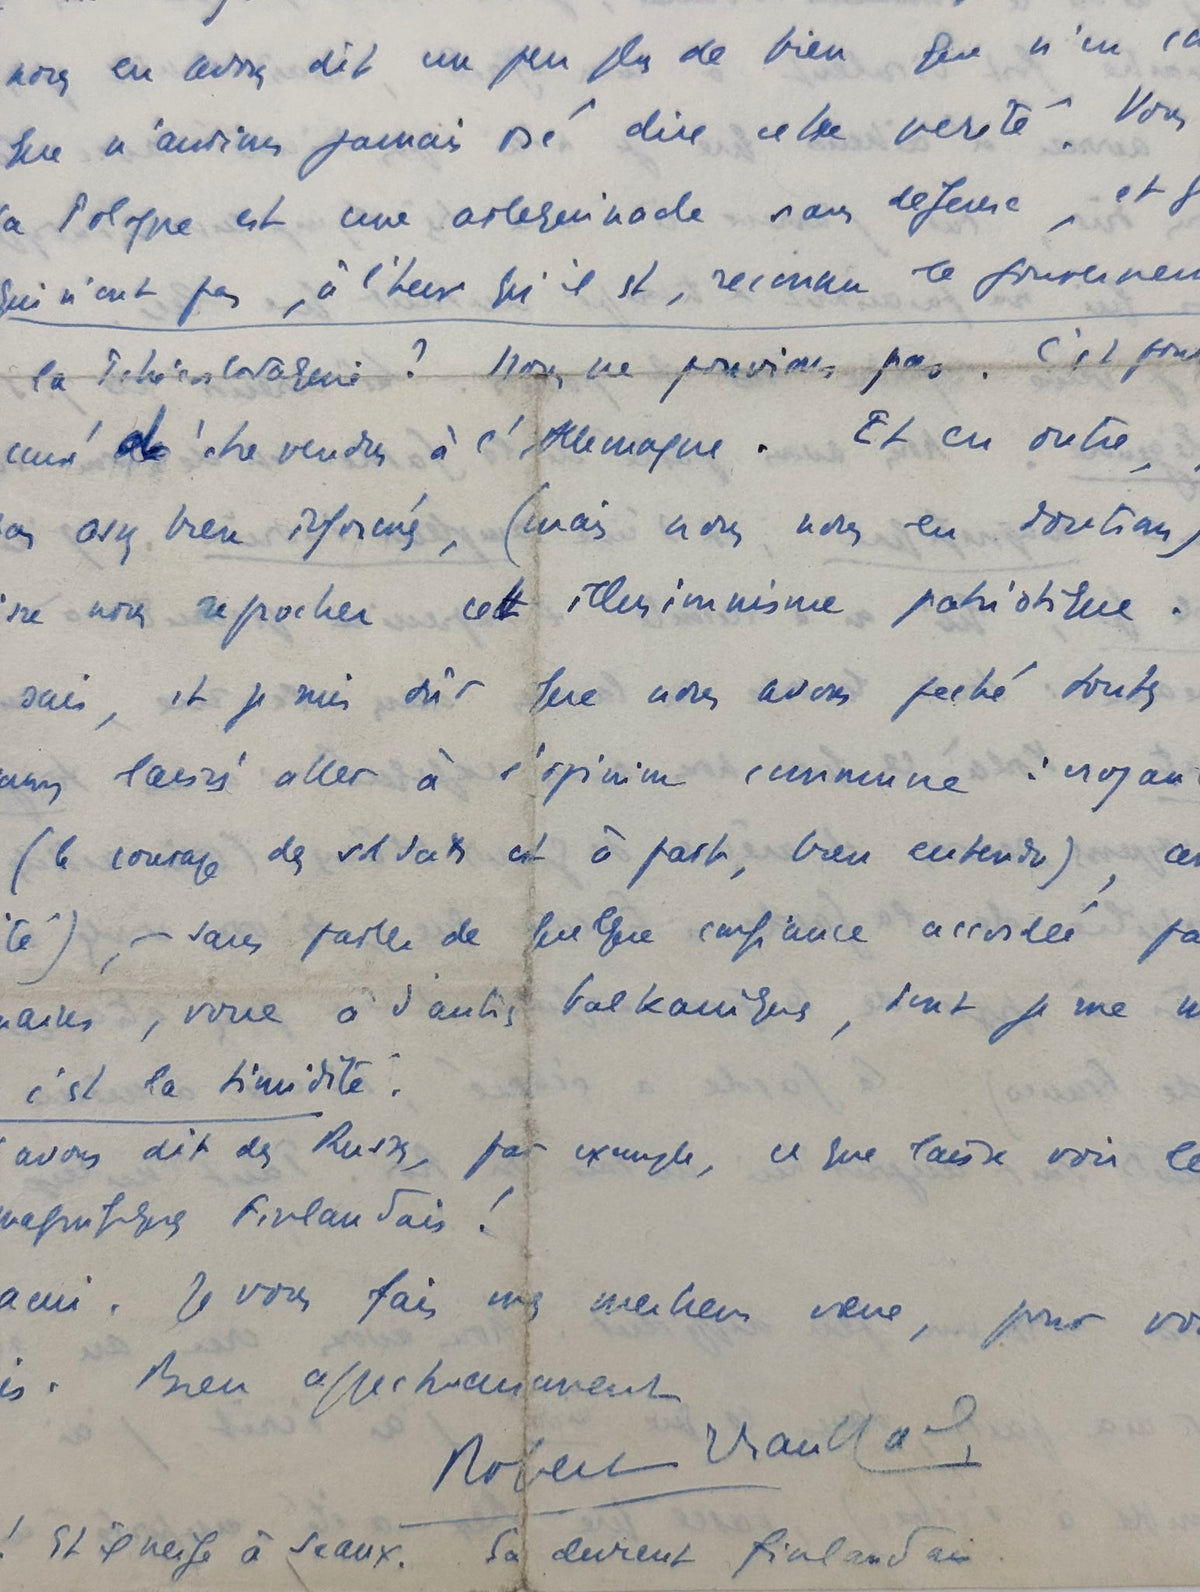 nous en avons dit un peu plus de bien que n'en
que n'aurions jamais osé dire cette vérité. Vous
la Pologne est une arlequinade sans défense, et
qui n'ont pas, à l'heure qu'il est, reconnu le gouvernem
la Tchécoslovaquie ? Nous ne pouvions pas. C'est pour
cusé d'être vendus à l'Allemagne. Et en outre,
pas assez bien informés, (mais nous nous en doutions)
ire nous reprocher cet illusionnisme patriotique.
sais, et je suis sûr que nous avons péché toutes
laissé aller à l'opinion commune : croyant
(le courage des soldats est à part, bien entendu),
ité), — sans parler de quelque confiance accordée pa
mains, voire à d'autres balkaniques, dont je me
c'est la timidité.
avons dit des Russes, par exemple, ce que laisse voir le
magnifiques Finlandais !
ami. Je vous fais mes meilleurs vœux, pour vo
is. Bien affectueusement
Robert
! Et il neige à Sceaux. Ça devient finlandais.